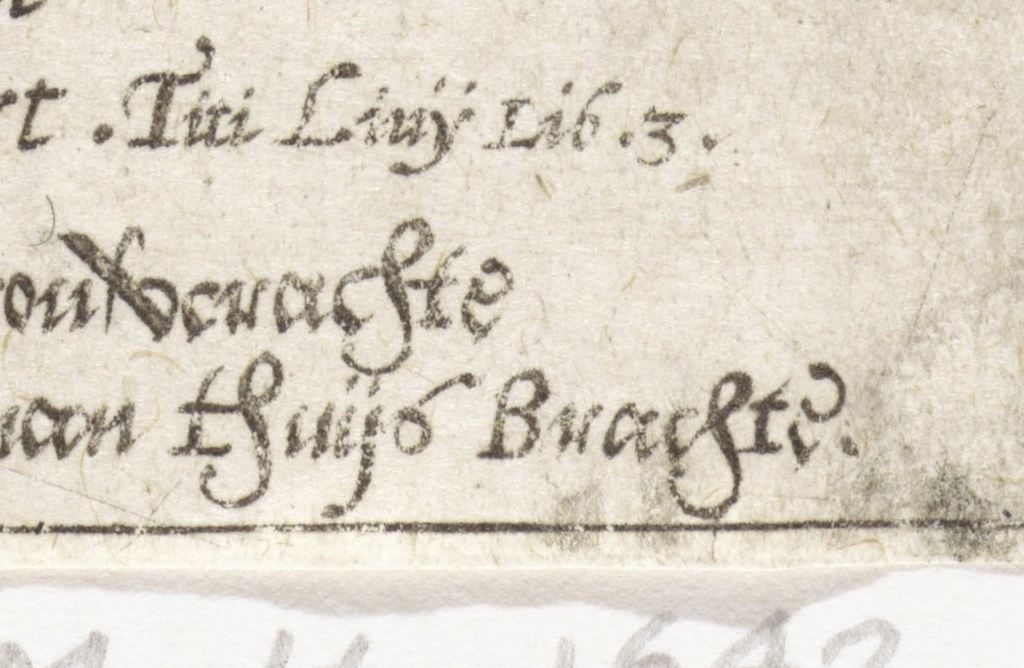 rt . Titi Liuij Lib . 3 .
rou verachte
man thuijs Brachte .